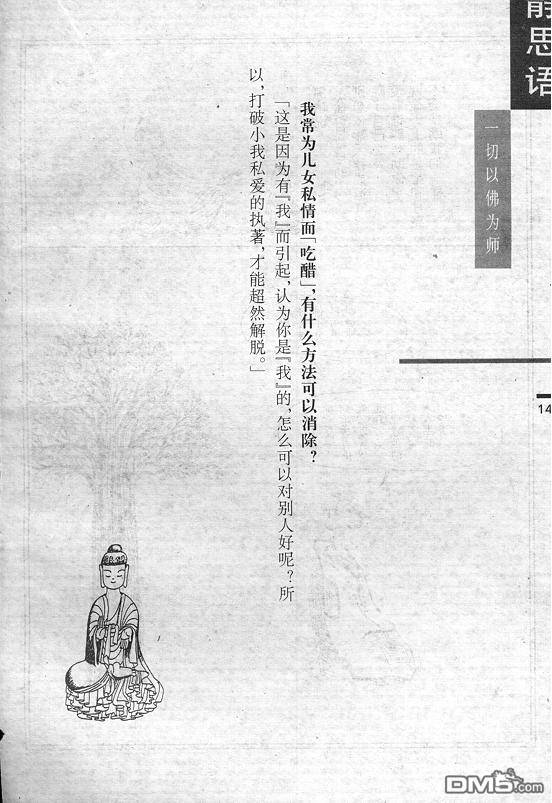 静思语
一切以佛为师
14
我常为儿女私情而「吃醋」，有什么方法可以消除？
「这是因为有『我』而引起，认为你是『我』的，怎么可以对别人好呢？所
以，打破小我私爱的执著，才能超然解脱。」
DM5.com